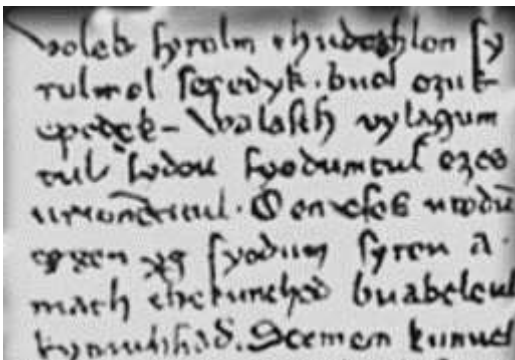 volek syrolm thudothlon sy
rolmol sepedyk. buol ozuk
epedek - walasth vylagum
tul sydou fyodumtul ezes
urumemtuul. O en eses urodū
eggen yg fyodum syrou a.
niath thekunched buabeleul
kyniuhhad. Scemem kunuel